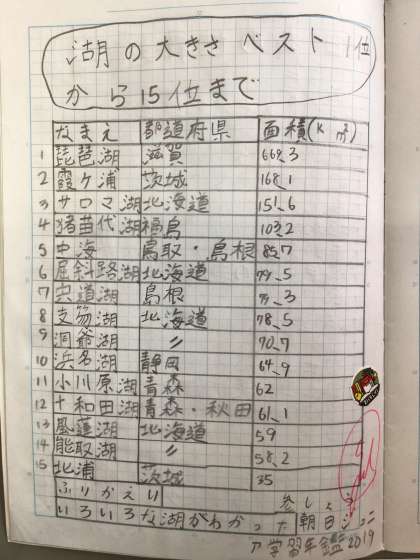 湖の大きさベスト1位
から15位まで
なまえ 都道府県 面積(K㎡)
1 琵琶湖 滋賀 669.3
2 霞ヶ浦 茨城 168.1
3 サロマ湖 北海道 151.6
4 猪苗代湖 福島 103.2
5 中海 鳥取・島根 85.7
6 屈斜路湖 北海道 79.5
7 宍道湖 島根 79.3
8 支笏湖 北海道 78.5
9 洞爺湖 〃 70.7
10 浜名湖 静岡 64.9
11 小川原湖 青森 62
12 十和田湖 青森・秋田 61.1
13 風蓮湖 北海道 59
14 能取湖 〃 58.2
15 北浦 茨城 35
ふりかえり
いろいろな湖がわかった
朝日ジュニ
ア学習年鑑2019